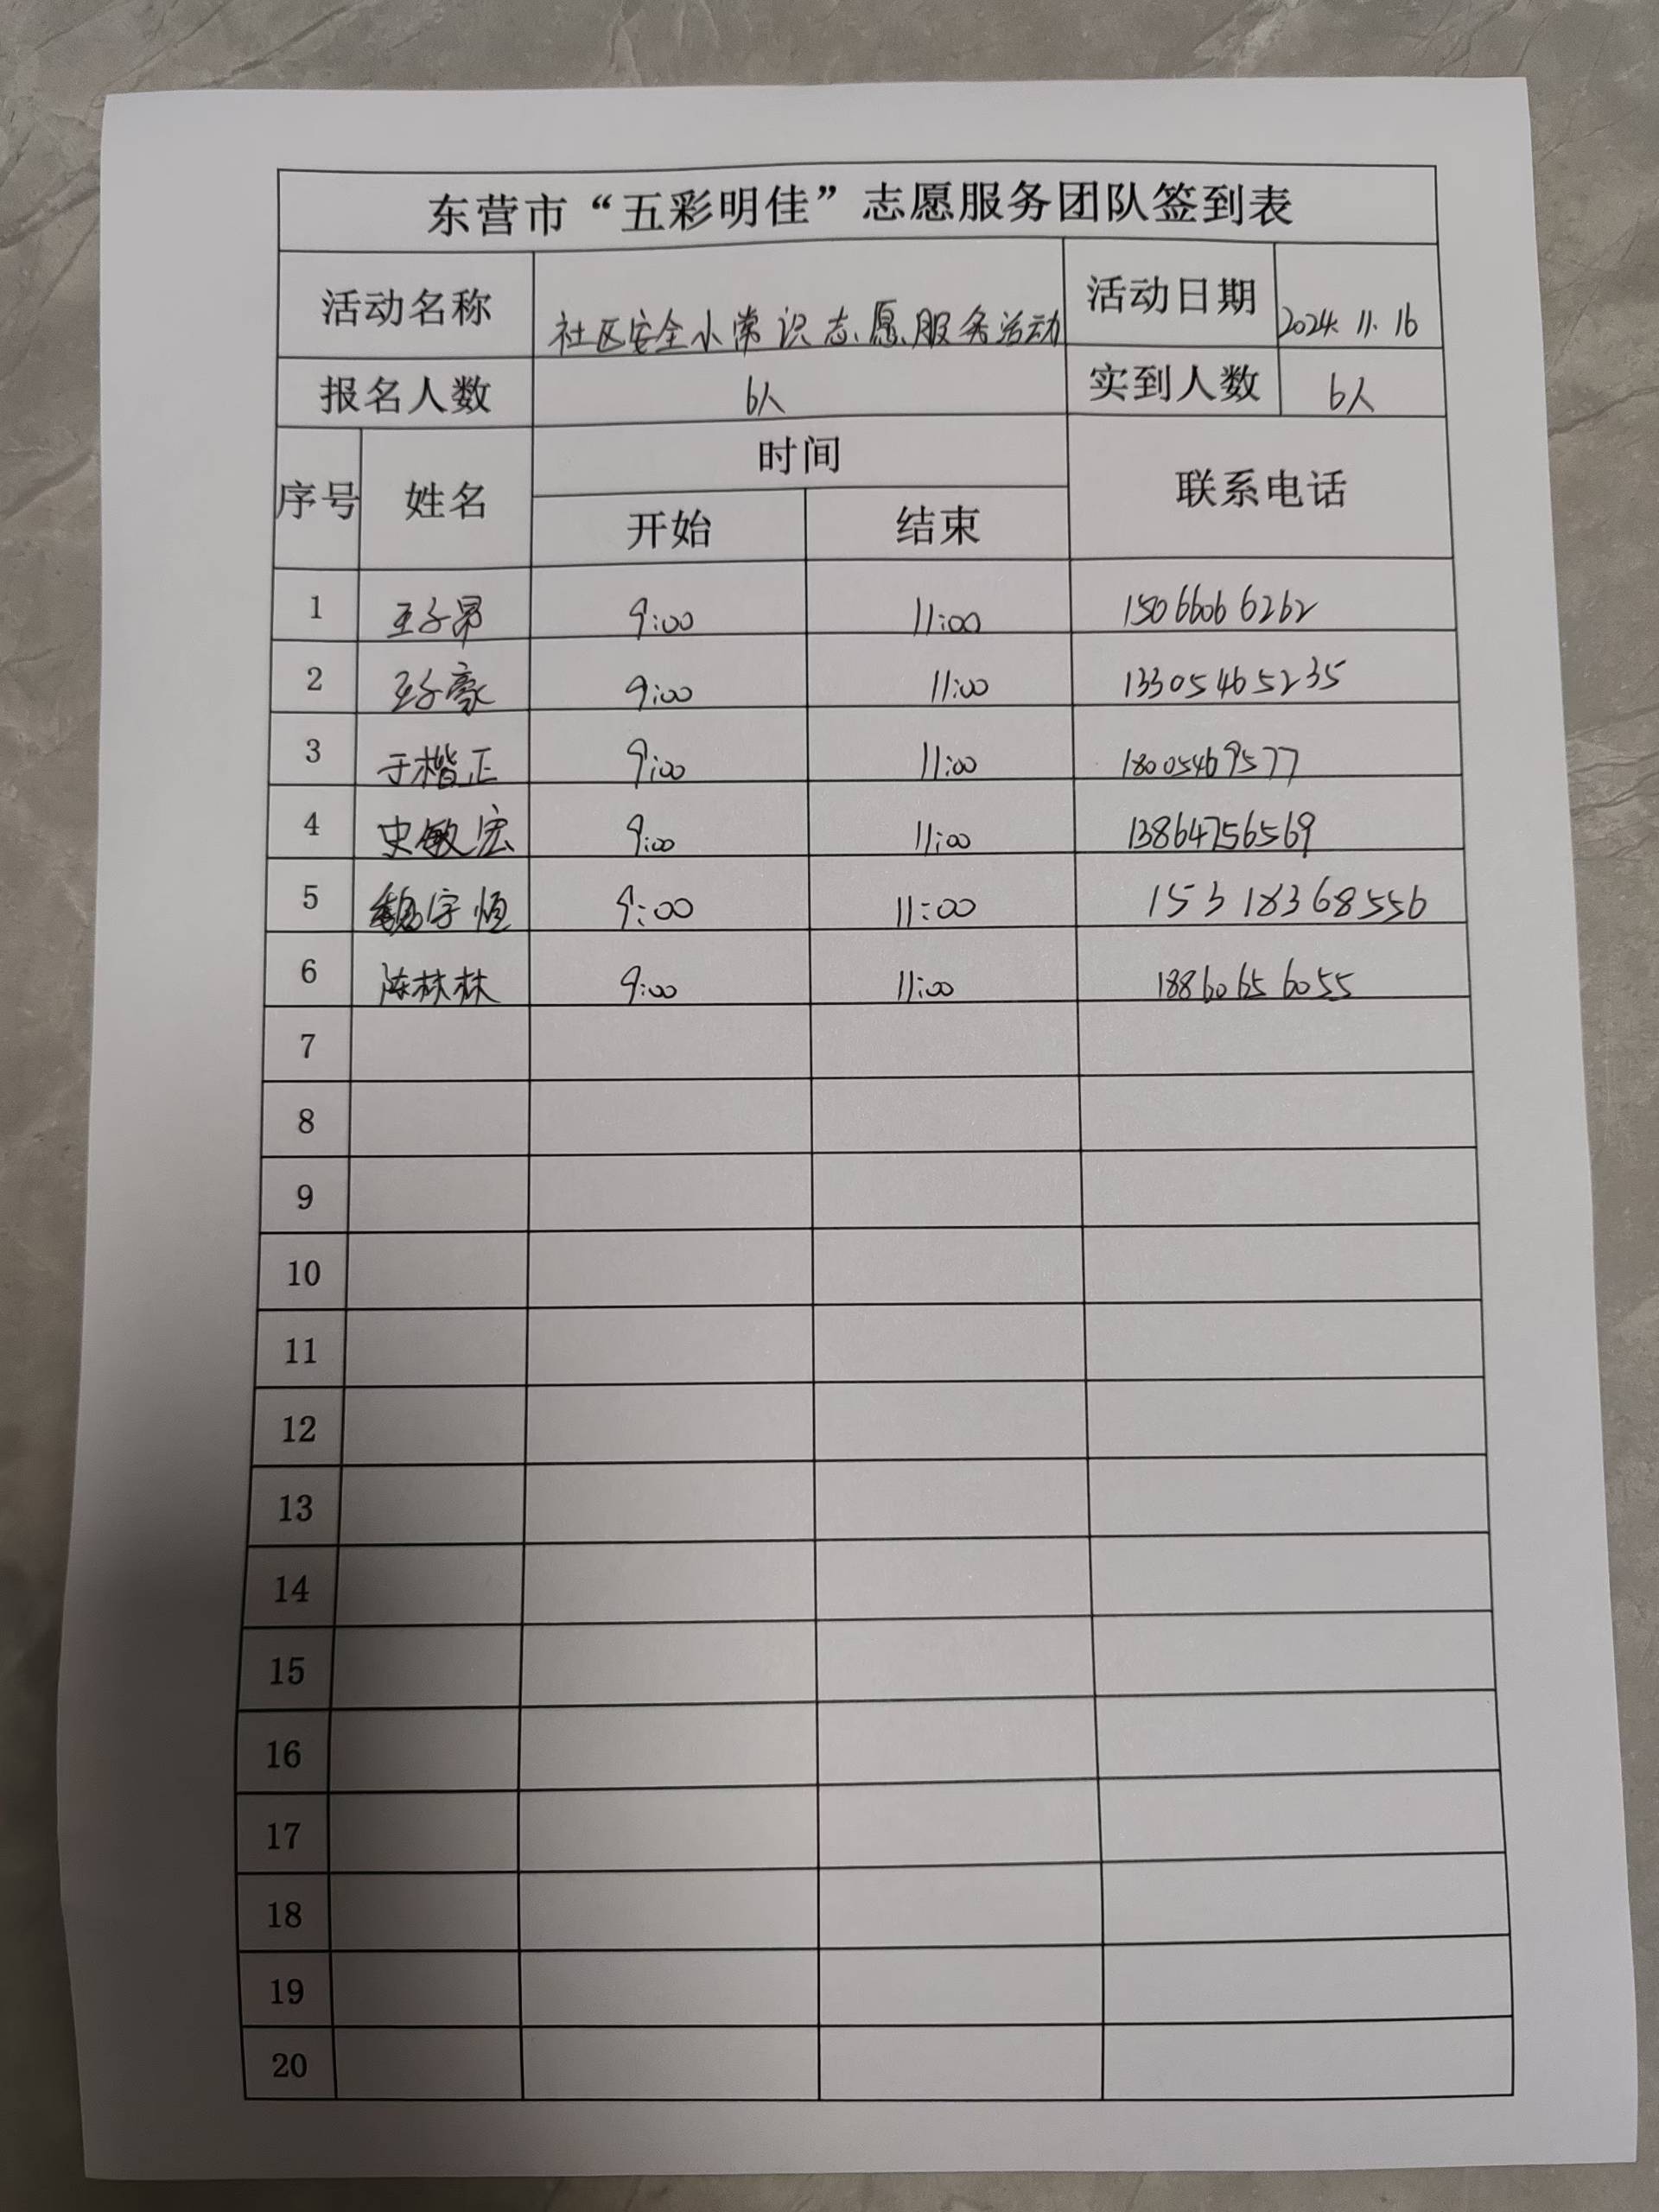 东营市“五彩明佳”志愿服务团队签到表
活动名称 社区安全小常识志愿服务活动 活动日期 2024.11.16
报名人数 6人 实到人数 6人
序号 姓名 时间 联系电话
开始 结束
1 王子昂 9:00 11:00 15066066262
2 王子豪 9:00 11:00 13305465235
3 于楷正 9:00 11:00 18005469577
4 史敏宏 9:00 11:00 13864756569
5 魏宇恒 9:00 11:00 15318368556
6 陈林林 9:00 11:00 18860656055
7
8
9
10
11
12
13
14
15
16
17
18
19
20